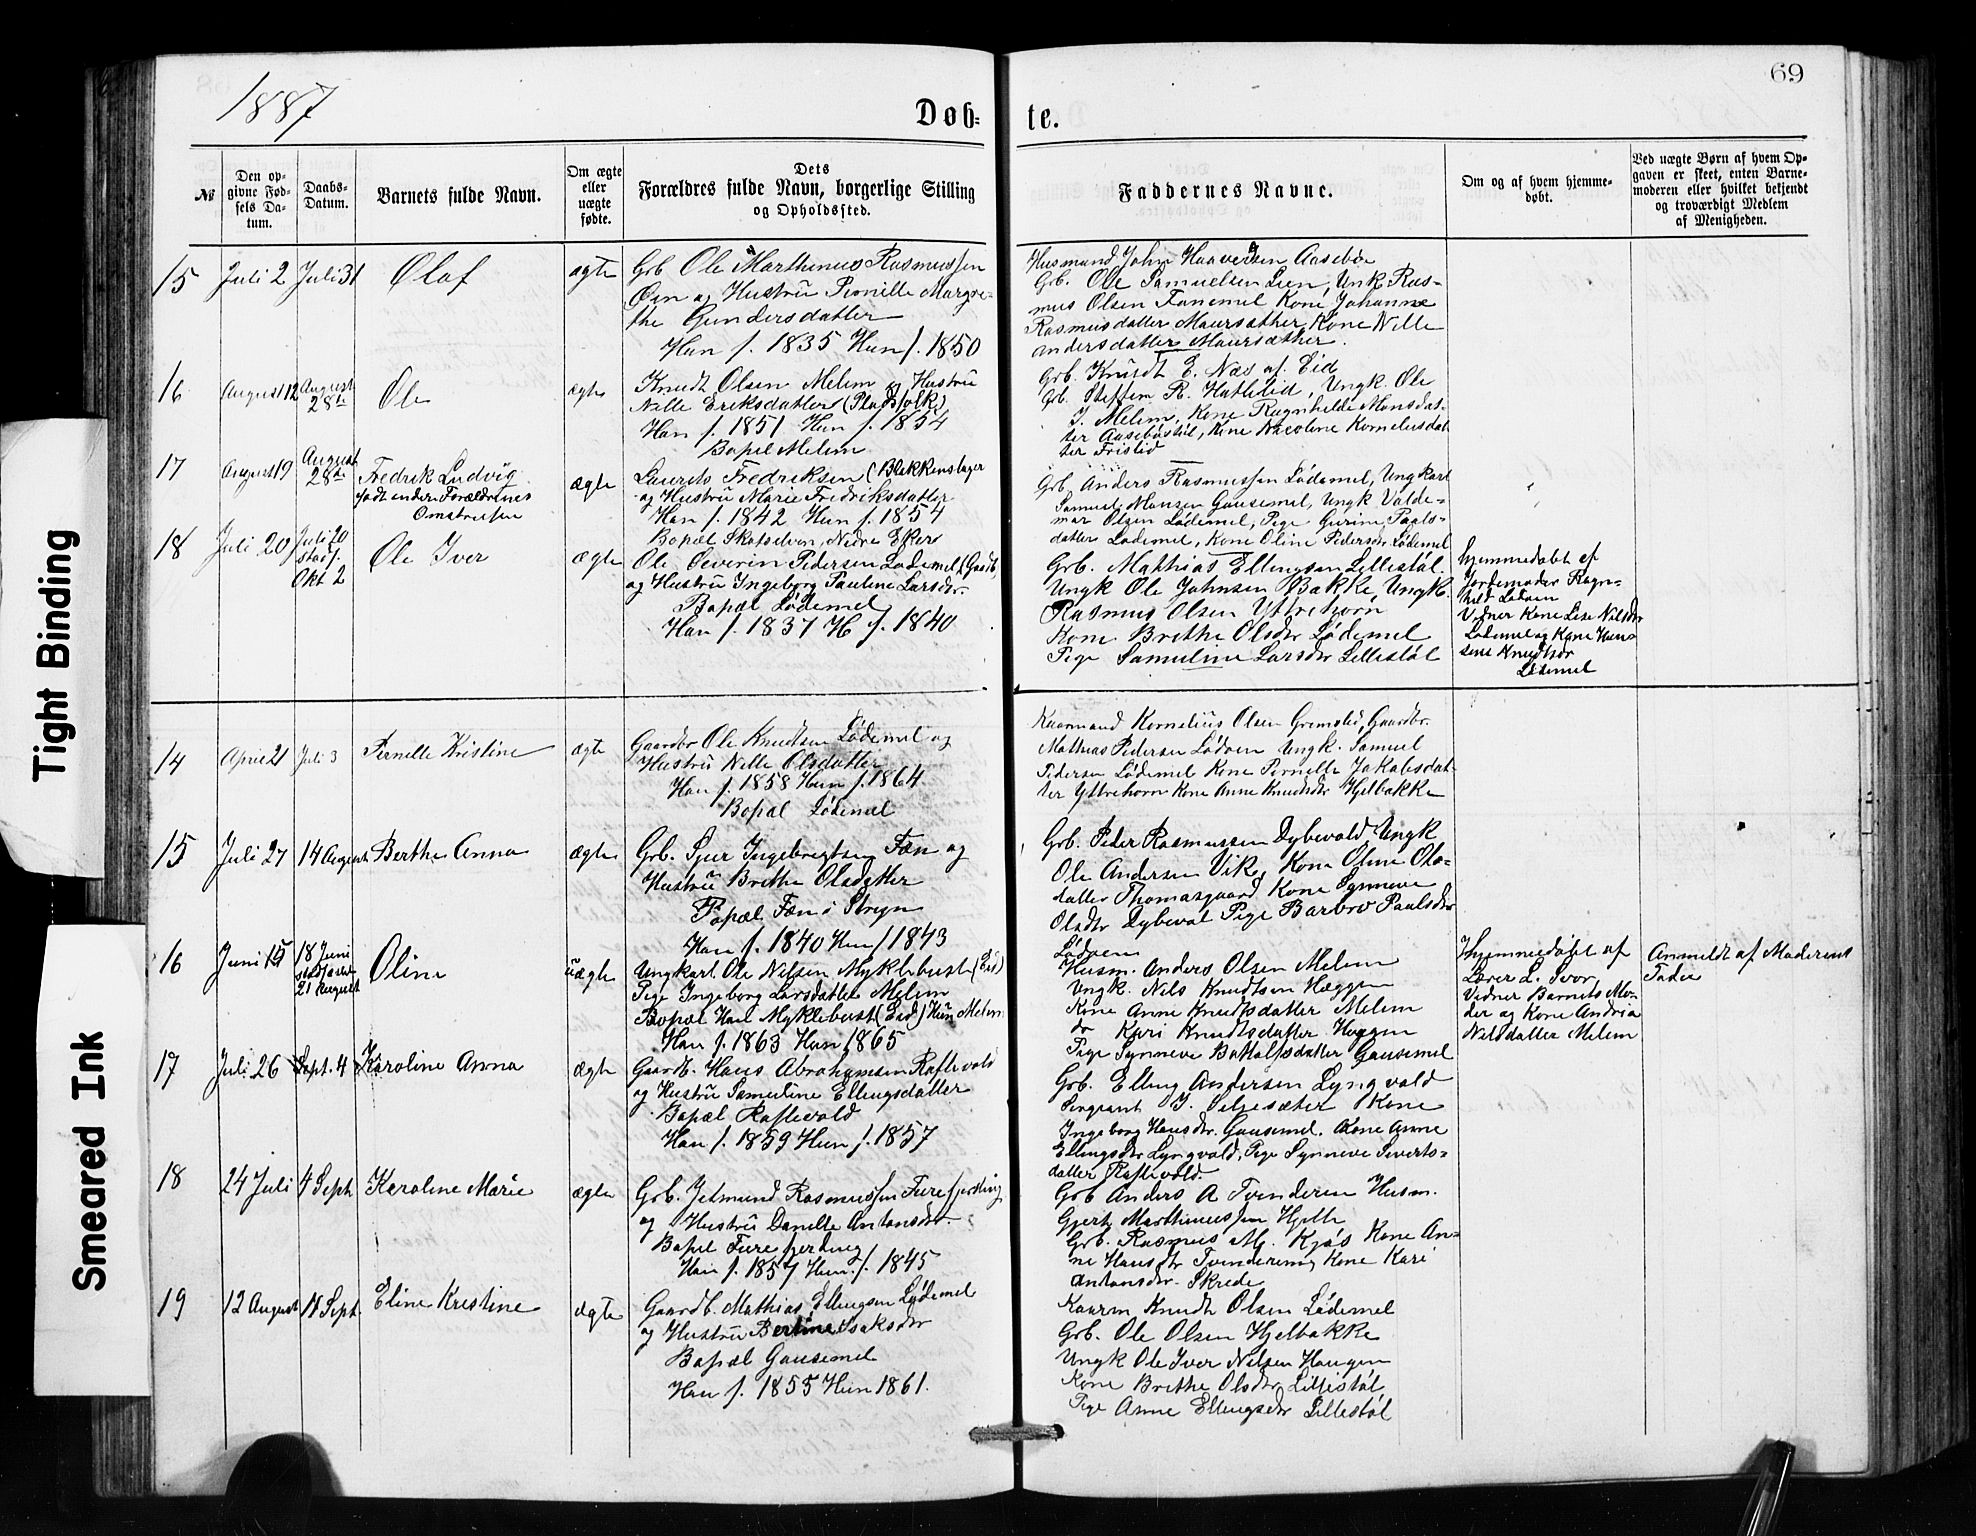 69
1887
Døb= te.
№
Den op-
givne Fød-
sels Da-
tum.
Daabs-
Datum.
Barnets fulde Navn.
Om ægte
eller
uægte
fødte.
Dets
Forældres fulde Navn, borgerlige Stilling
og Opholdssted.
Faddernes Navne.
Om og af hvem hjemme-
døbt.
Ved uægte Børn af hvem Op-
gaven er skeet, enten Barne-
moderen eller hvilket bekjendt
og troværdigt Medlem
af Menigheden.
15 Juli 2 Juli 31 Olaf ægte
Grb Ole Marthinus Rasmussen
Øen og Hustru Pernille Margre-
the Gundersdatter
Han f. 1835 Hun f. 1850
Husmand John Haaversen Aasebøe
Grb. Ole Samuelsen Lien, Unk Ras-
mus Olsen Fanemel Kone Johanne
Rasmusdatter Maursæther, Kone Nille
Andersdatter Maursæther.
16 August 12 August
28de
Ole ægte
Knudt Olsen Melem og Hustru
Nille Eriksdatter (Pladsfolk)
Han f. 1851 Hun f. 1854
Bopæl Melem
Grb. Knudt E. Næs af Eid
Grb. Steffen R. Hatlelid, Ungk. Ole
J. Melem, Kone Ragnhilde Monsdat-
ter Aasebøstøl, Kone Nicoline Kornelusdat
ter Fristid
17 August 19 August
28de
Fredrik Ludvig
født under Forældrenes
Omstreifen
ægte
Laurits Fredriksen (Blikkenslager
og Hustru Marie Fredriksdatter
Han f. 1842 Hun f. 1854
Bopæl Skotselven, Nedre Eker
Grb. Anders Rasmussen Lødemel, Ungkarl
Samuel Monsen Gausemel, Ungk Valde-
mar Olsen Lødemel, Pige Gurine Paals-
datter Lødemel, Kone Oline Pedersdr Lødemel
18 Juli 20 Juli 20
stadf.
Okt 2
Ole Iver ægte
Ole Severin Pedersen Lødemel (Gaardb.
og Hustru Ingeborg Pauline Larsdr.
Bopæl Lødemel
Han f. 1837 H f. 1840
Grb. Mathias Ellingsen Lillestøl.
Ungk Ole Johnsen Bakke, Ungk.
Rasmus Olsen Yttrehorn
Kone Brithe Olsdr Lødemel
Pige Samuline Larsdr Lillestøl
Hjemmedøbt af
Jordemoder Ragn-
hild Lødøen
Vidner Kone Lise Nilsdr
Lødemel og Kone Han-
sine Knudtsdr
Lødemel
14 April 21 Juli 3 Pernille Kristine ægte
Gaardbr Ole Knudtsen Lødemel og
Hustru Nille Olsdatter
Han f. 1858 Hun f. 1864
Bopæl Lødemel
Kaarmand Kornelius Olsen Gremstad, Gaardbr.
Mathias Pedersen Lødøen Ungk. Samuel
Pedersen Lødemel Kone Pernille Jakobsdat-
ter Yttrehorn Kone Anne Knudsdr Hjelbakke
15 Juli 27 14 August Berthe Anna ægte
Grb. Sjur Ingebregtsen Fæn og
Hustru Brithe Olsdatter
Bopæl Fæn i Stryn
Han f. 1840 Hun f 1843
Grb. Peder Rasmussen Dybevold Ungk
Ole Andersen Vik, Kone Oline Ols-
datter Thomasgaard Kone Synneve
Olsdtr Dybevol Pige Barbro Paulsdr
Lødøen
16 Juni 15 18 Juni
stadfæstet
21 August
Oline uægte
Ungkarl Ole Nilsen Myklebust (Eid)
Pige Ingeborg Larsdatter Melem
Bopæl Han Myklebust (Eid) Hun Melem
Han f. 1863 Hun 1865
Husm. Anders Olsen Melem
Ungk. Nils Knudtsen Hæggen
Kone Anne Knudtsdatter Melem
do Kari Knudtsdatter Heggen
Pige Synneve Botholfsdatter Gausemel
Hjemmedøbt af
Lærer L. Svor
Vidner Barnets Mo-
der og Kone Andria
Nilsdatter Melem
Anmeldt af Moderens
Fader
17 Juli 26 Sept. 4 Karoline Anna ægte
Gaardb. Hans Abrahamsen Raftevold
og Hustru Samueline Ellingsdatter
Bopæl Raftevold
Han f. 1859 Hun f. 1857
Grb. Elling Andersen Lyngvold
Sergeant J. Seljesæter Kone
Ingeborg Hansdr. Gausemel. Kone Anne
Ellingsdtr Lyngvold, Pige Synneve Siverts-
datter Raftevold.
18 24 Juli 4 Sept Karoline Marie ægte
Grb. Jetmund Rasmussen Furefjerding
og Hustru Danelte Antonsdtr.
Bopæl Furefjerding
Han f. 1857 Hun f. 1845
Grb Anders A Tvinderein Husm.
Gjert Marthinussen Hjelle
Grb. Rasmus M. Kjøs Kone An-
ne Hansdtr Tvinderein, Kone Kari
Antonsdtr. Skrede
19 12 August 11 Sept. Eline Kristine ægte
Gaardb. Mathias Ellingsen Lødemel
og Hustru Bertine Isaksdtr
Bopæl Gausemel
Han f. 1855 Hun 1861.
Kaarm Knudt Olsen Lødemel
Grb. Ole Olsen Hjelbakke
Ungk Ole Iver Nilsen Haugen
Kone Brithe Olsdtr Lillestøl
Pige Anne Ellingsdtr Lillestøl
Tight Binding
Smeared Ink